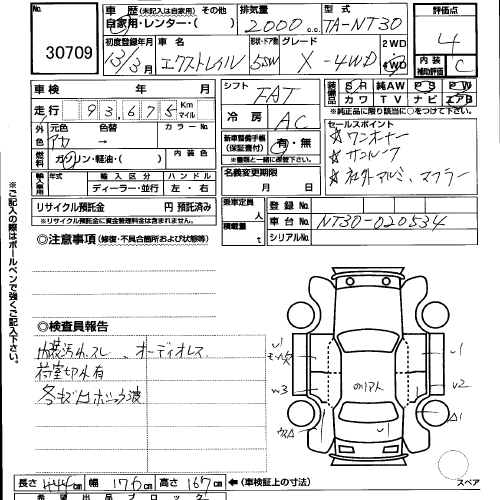 No. 30709
車歴 (未記入は自家用) その他
自家用・レンター・( )
排気量 2000 cc
型式 TA-NT30
評価点 4
初度登録年月 13/3月
車名 エクストレイル
形状・ドア数 5SW
グレード X-4WD
2WD
4WD
内装 補助評価 C
車検 年 月
シフト FAT
装備品 SR 純AW PS PW
カワ TV ナビ エアB
※純正品に限り該当に○をつけて下さい
走行 93,675 Km マイル
冷房 AC
外色 元色 アカ → 色替 カラーNo.
新車整備手帳 (保証書付) 有・無
※書類と一緒に保管下さい
セールスポイント
☆ワンオーナー
☆サンルーフ
☆社外アルミ、マフラー
燃料 ガソリン・軽油・( ) 内装色
名義変更期限 月 日
輸入車用 年式 輸入区分 ディーラー・並行 ハンドル 左・右
リサイクル預託金 円 預託済み
※リサイクル預託金に資金管理料金は含みません
乗車定員 人
積載量 t
登録No.
車台No. NT30-020534
シリアルNo.
◎注意事項 (修復・不具合箇所および状態等)
※ご記入の際はボールペンで強くご記入下さい
◎検査員報告
内装汚れ、スレ、オーディオレス
荷室切れ有
v1
v1
w3
v2
A1
v1
スペア
長さ 444 cm 幅 176 cm 高さ 167 cm ←(車検証上の寸法)
希望出品ブロック